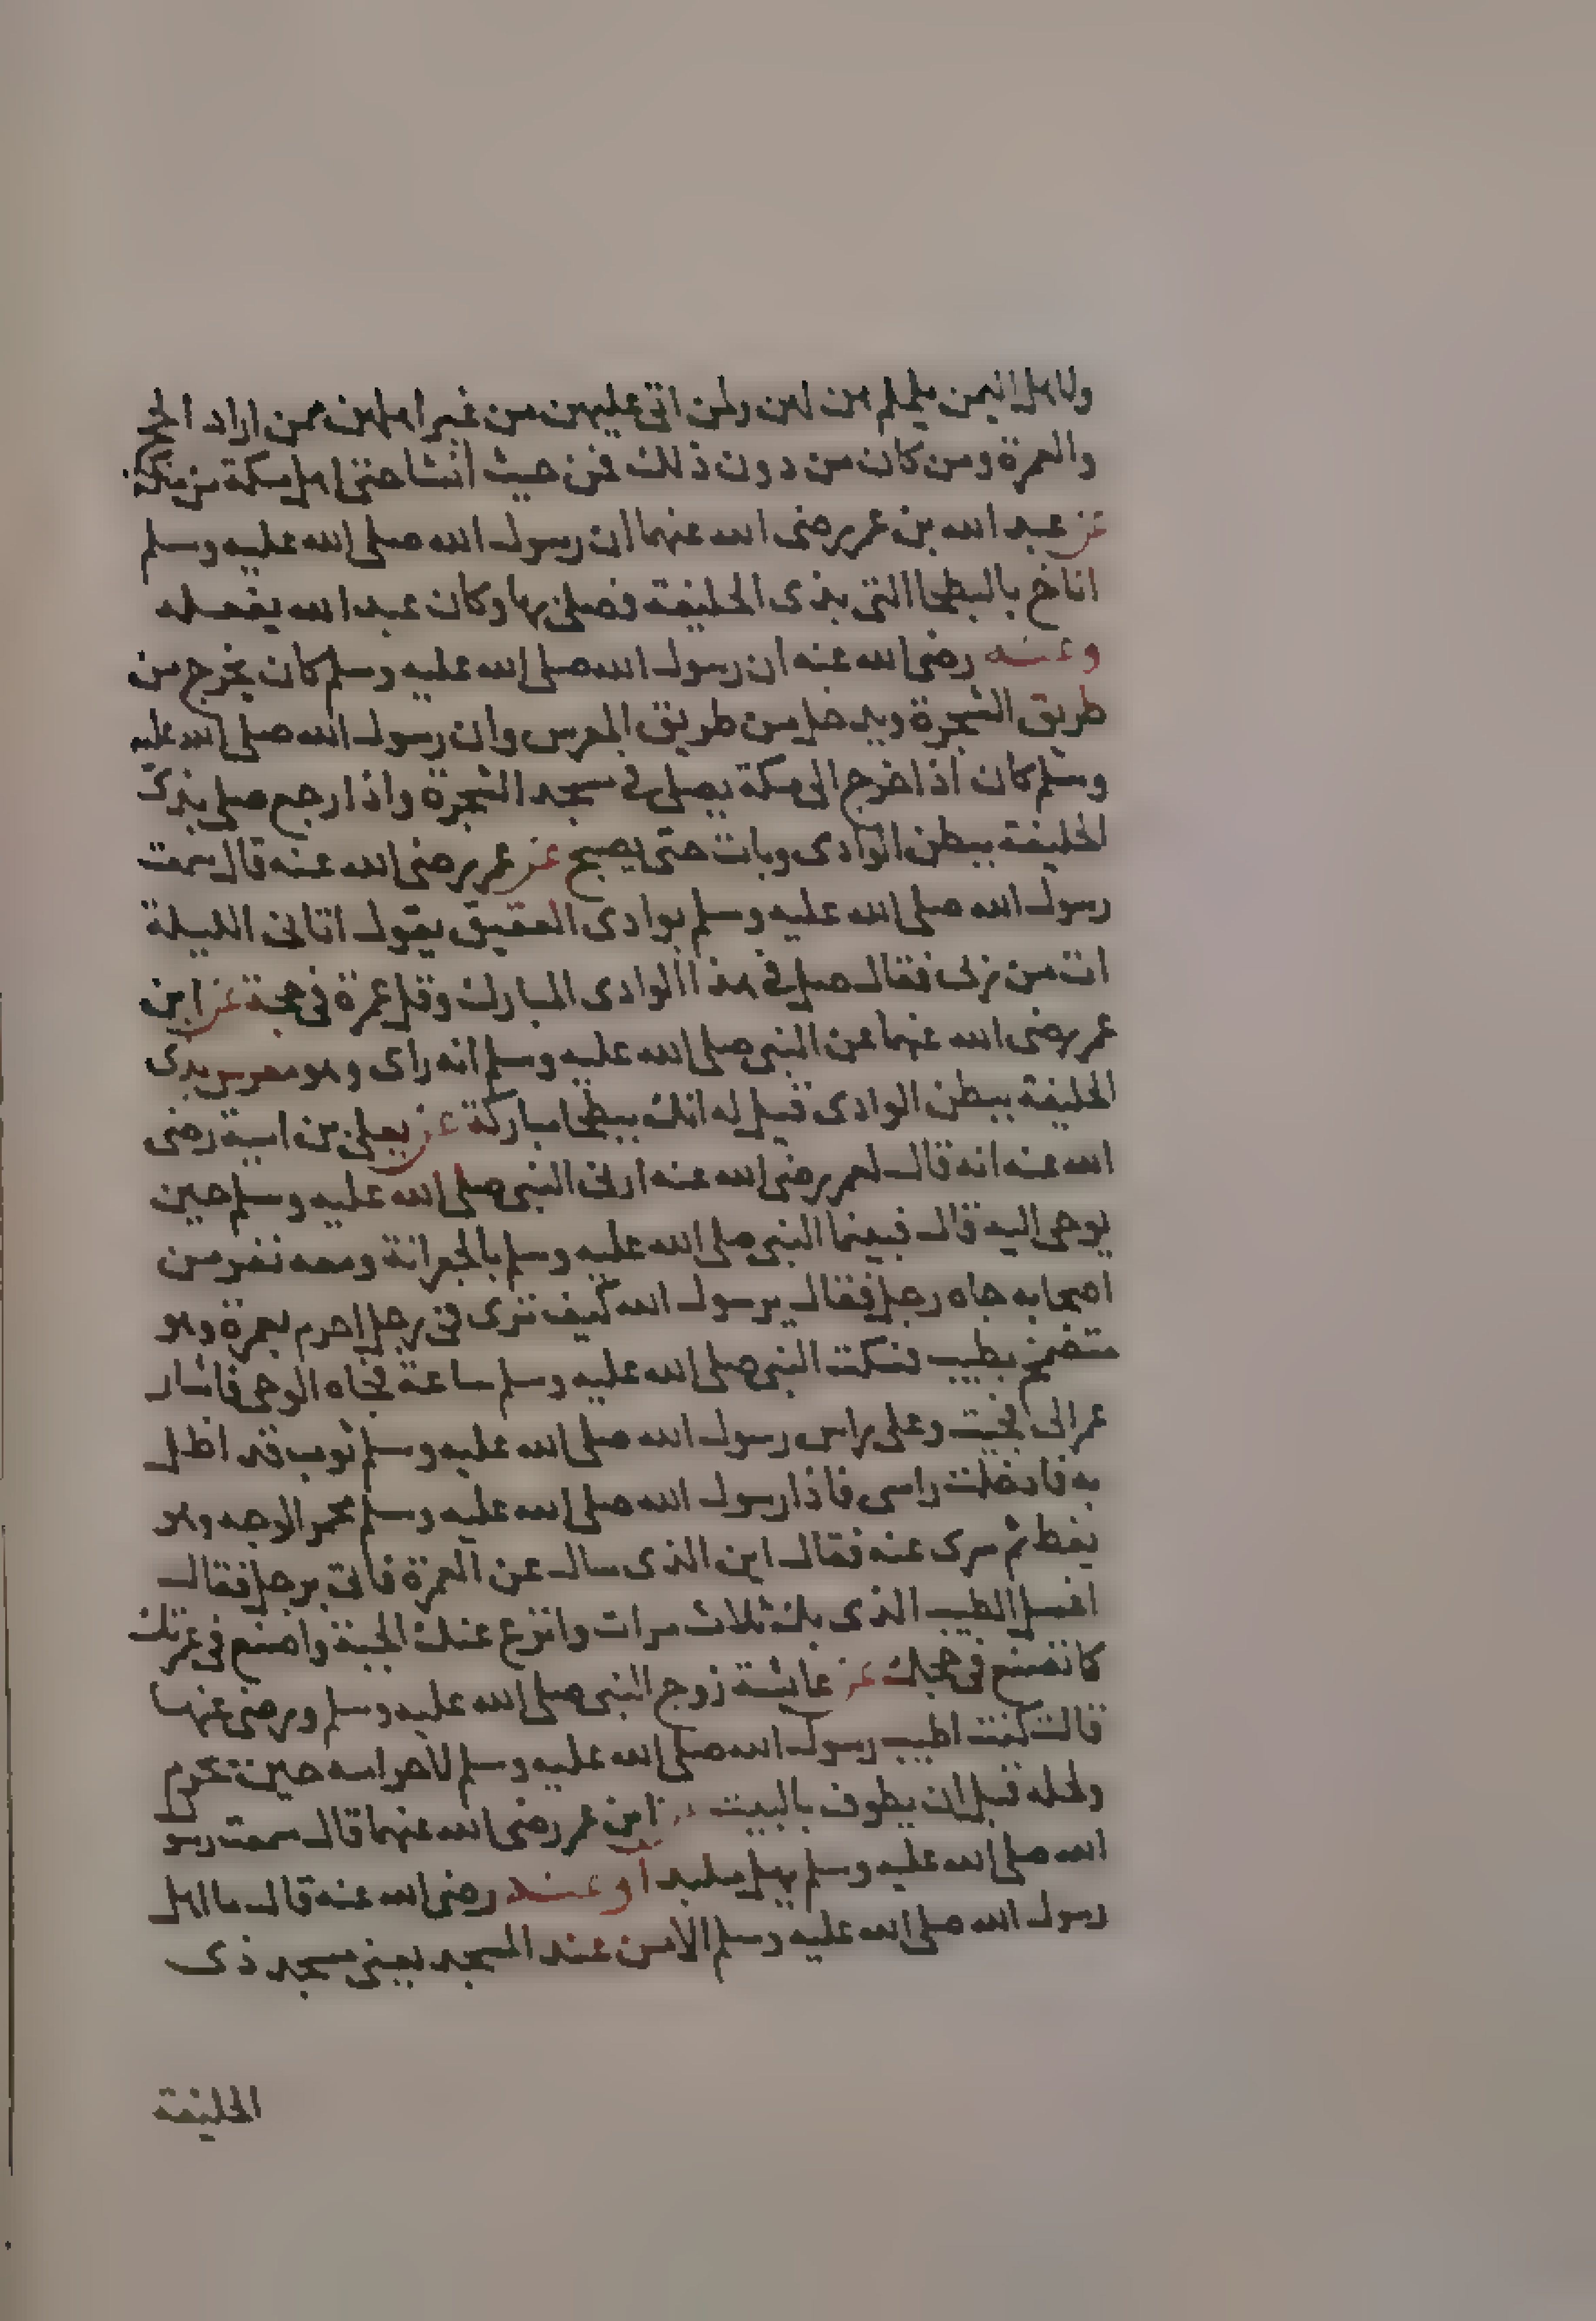 ولاهل اليمن يلملم هن لهن ولمن اتى عليهن من غير اهلهن ممن اراد الحج
والعمرة ومن كان من دون ذلك فمن حيث انشا حتى اهل مكة من مكة
عن عبد الله بن عمر رضى الله عنهما ان رسول الله صلى الله عليه وسلم
اناخ بالبطحا التى بذى الحليفة فصلى بها وكان عبد الله يفعله
وعنه رضى الله عنه ان رسول الله صلى الله عليه وسلم كان يخرج من
طريق الشجرة ويدخل من طريق المعرس وان رسول الله صلى الله عليه
وسلم كان اذا خرج الى مكة يصلى فى مسجد الشجرة واذا رجع صلى بذى
الحليفة ببطن الوادى وبات حتى يصبح عن عمر رضى الله عنه قال سمعت
رسول الله صلى الله عليه وسلم بوادى العقيق يقول اتانى الليلة
ات من ربى فقال صل فى هذا الوادى المبارك وقل عمرة فى حجة عن ابن
عمر رضى الله عنهما عن النبى صلى الله عليه وسلم انه راى وهو معرس بذى
الحليفة ببطن الوادى قيل له انك ببطحا مباركة عن يعلى بن امية رضى
الله عنه انه قال لعمر رضى الله عنه ارنى النبى صلى الله عليه وسلم حين
يوحى اليه قال فبينما النبى صلى الله عليه وسلم بالجعرانة ومعه نفر من
اصحابه جاه رجل فقال يرسول الله كيف ترى فى رجل احرم بعمرة وهو
متضمخ بطيب فسكت النبى صلى الله عليه وسلم ساعة فجاه الوحى فاشار
عمر الى فجيت وعلى راس رسول الله صلى الله عليه وسلم ثوب قد اظل
به فادخلت راسى فاذا رسول الله صلى الله عليه وسلم محمر الوجه وهو
يغط ثم سرى عنه فقال اين الذى سال عن العمرة فاتى برجل فقال
اغسل الطيب الذى بك ثلاث مرات وانزع عنك الجبة واصنع فى عمرتك
كما تصنع فى حجك عن عائشة زوج النبى صلى الله عليه وسلم ورضى عنها
قالت كنت اطيب رسول الله صلى الله عليه وسلم لاحرامه حين يحرم
ولحله قبل ان يطوف بالبيت عن ابن عمر رضى الله عنهما قال سمعت رسول
الله صلى الله عليه وسلم يهل ملبدا وعنه رضى الله عنه قال ما اهل
رسول الله صلى الله عليه وسلم الا من عند المسجد يعنى مسجد ذى
الحليفة